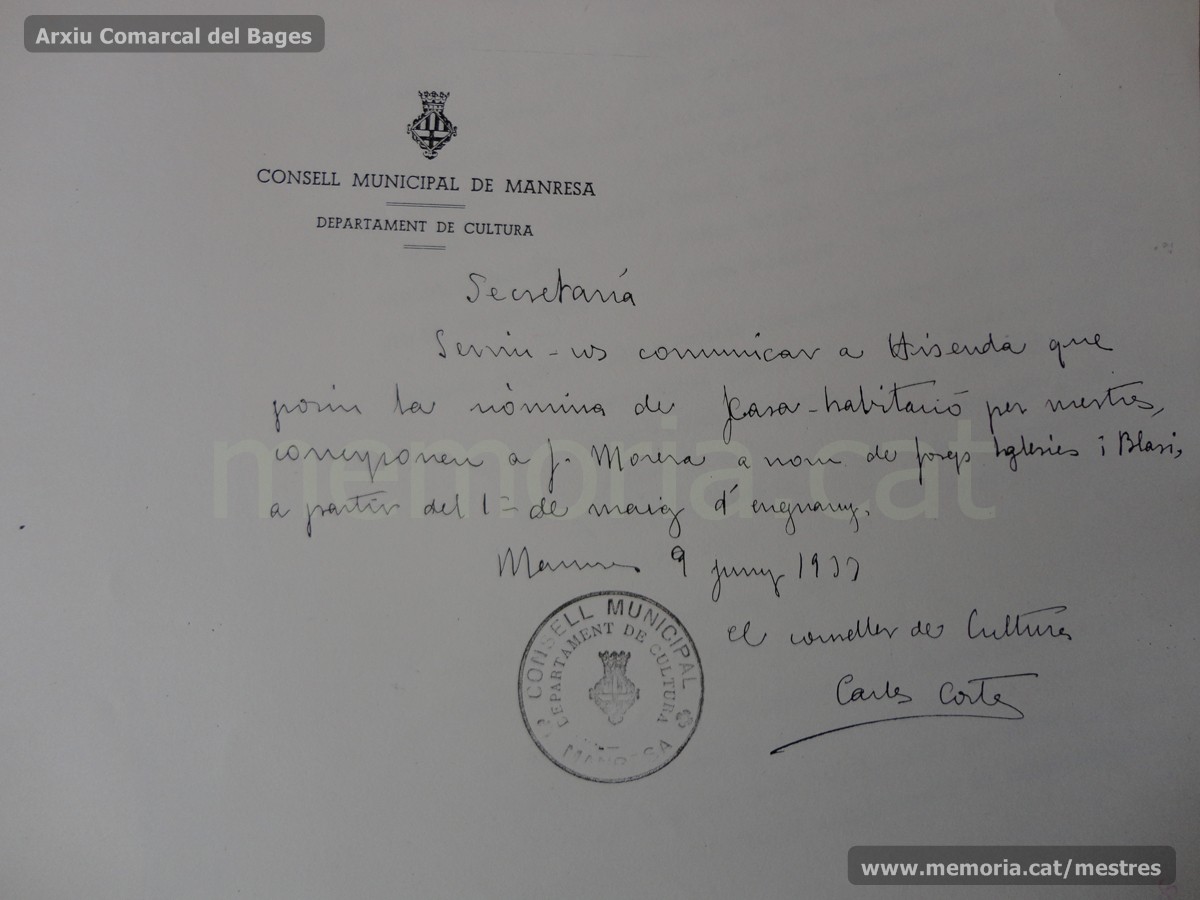 Arxiu Comarcal del Bages
CONSELL MUNICIPAL DE MANRESA
DEPARTAMENT DE CULTURA
Secretaría
Serviu-us comunicar a Hisenda que
posin la nòmina de Casa-habitació per mestres,
corresponen a J. Morera a nom de Josep Iglesies i Blasi,
a partir del 1er de maig d'enguany.
Manresa 9 juny 1937
El conseller de Cultura
Carles Cortes
CONSELL MUNICIPAL
DEPARTAMENT DE CULTURA
MANRESA
memoria.cat
www.memoria.cat/mestres